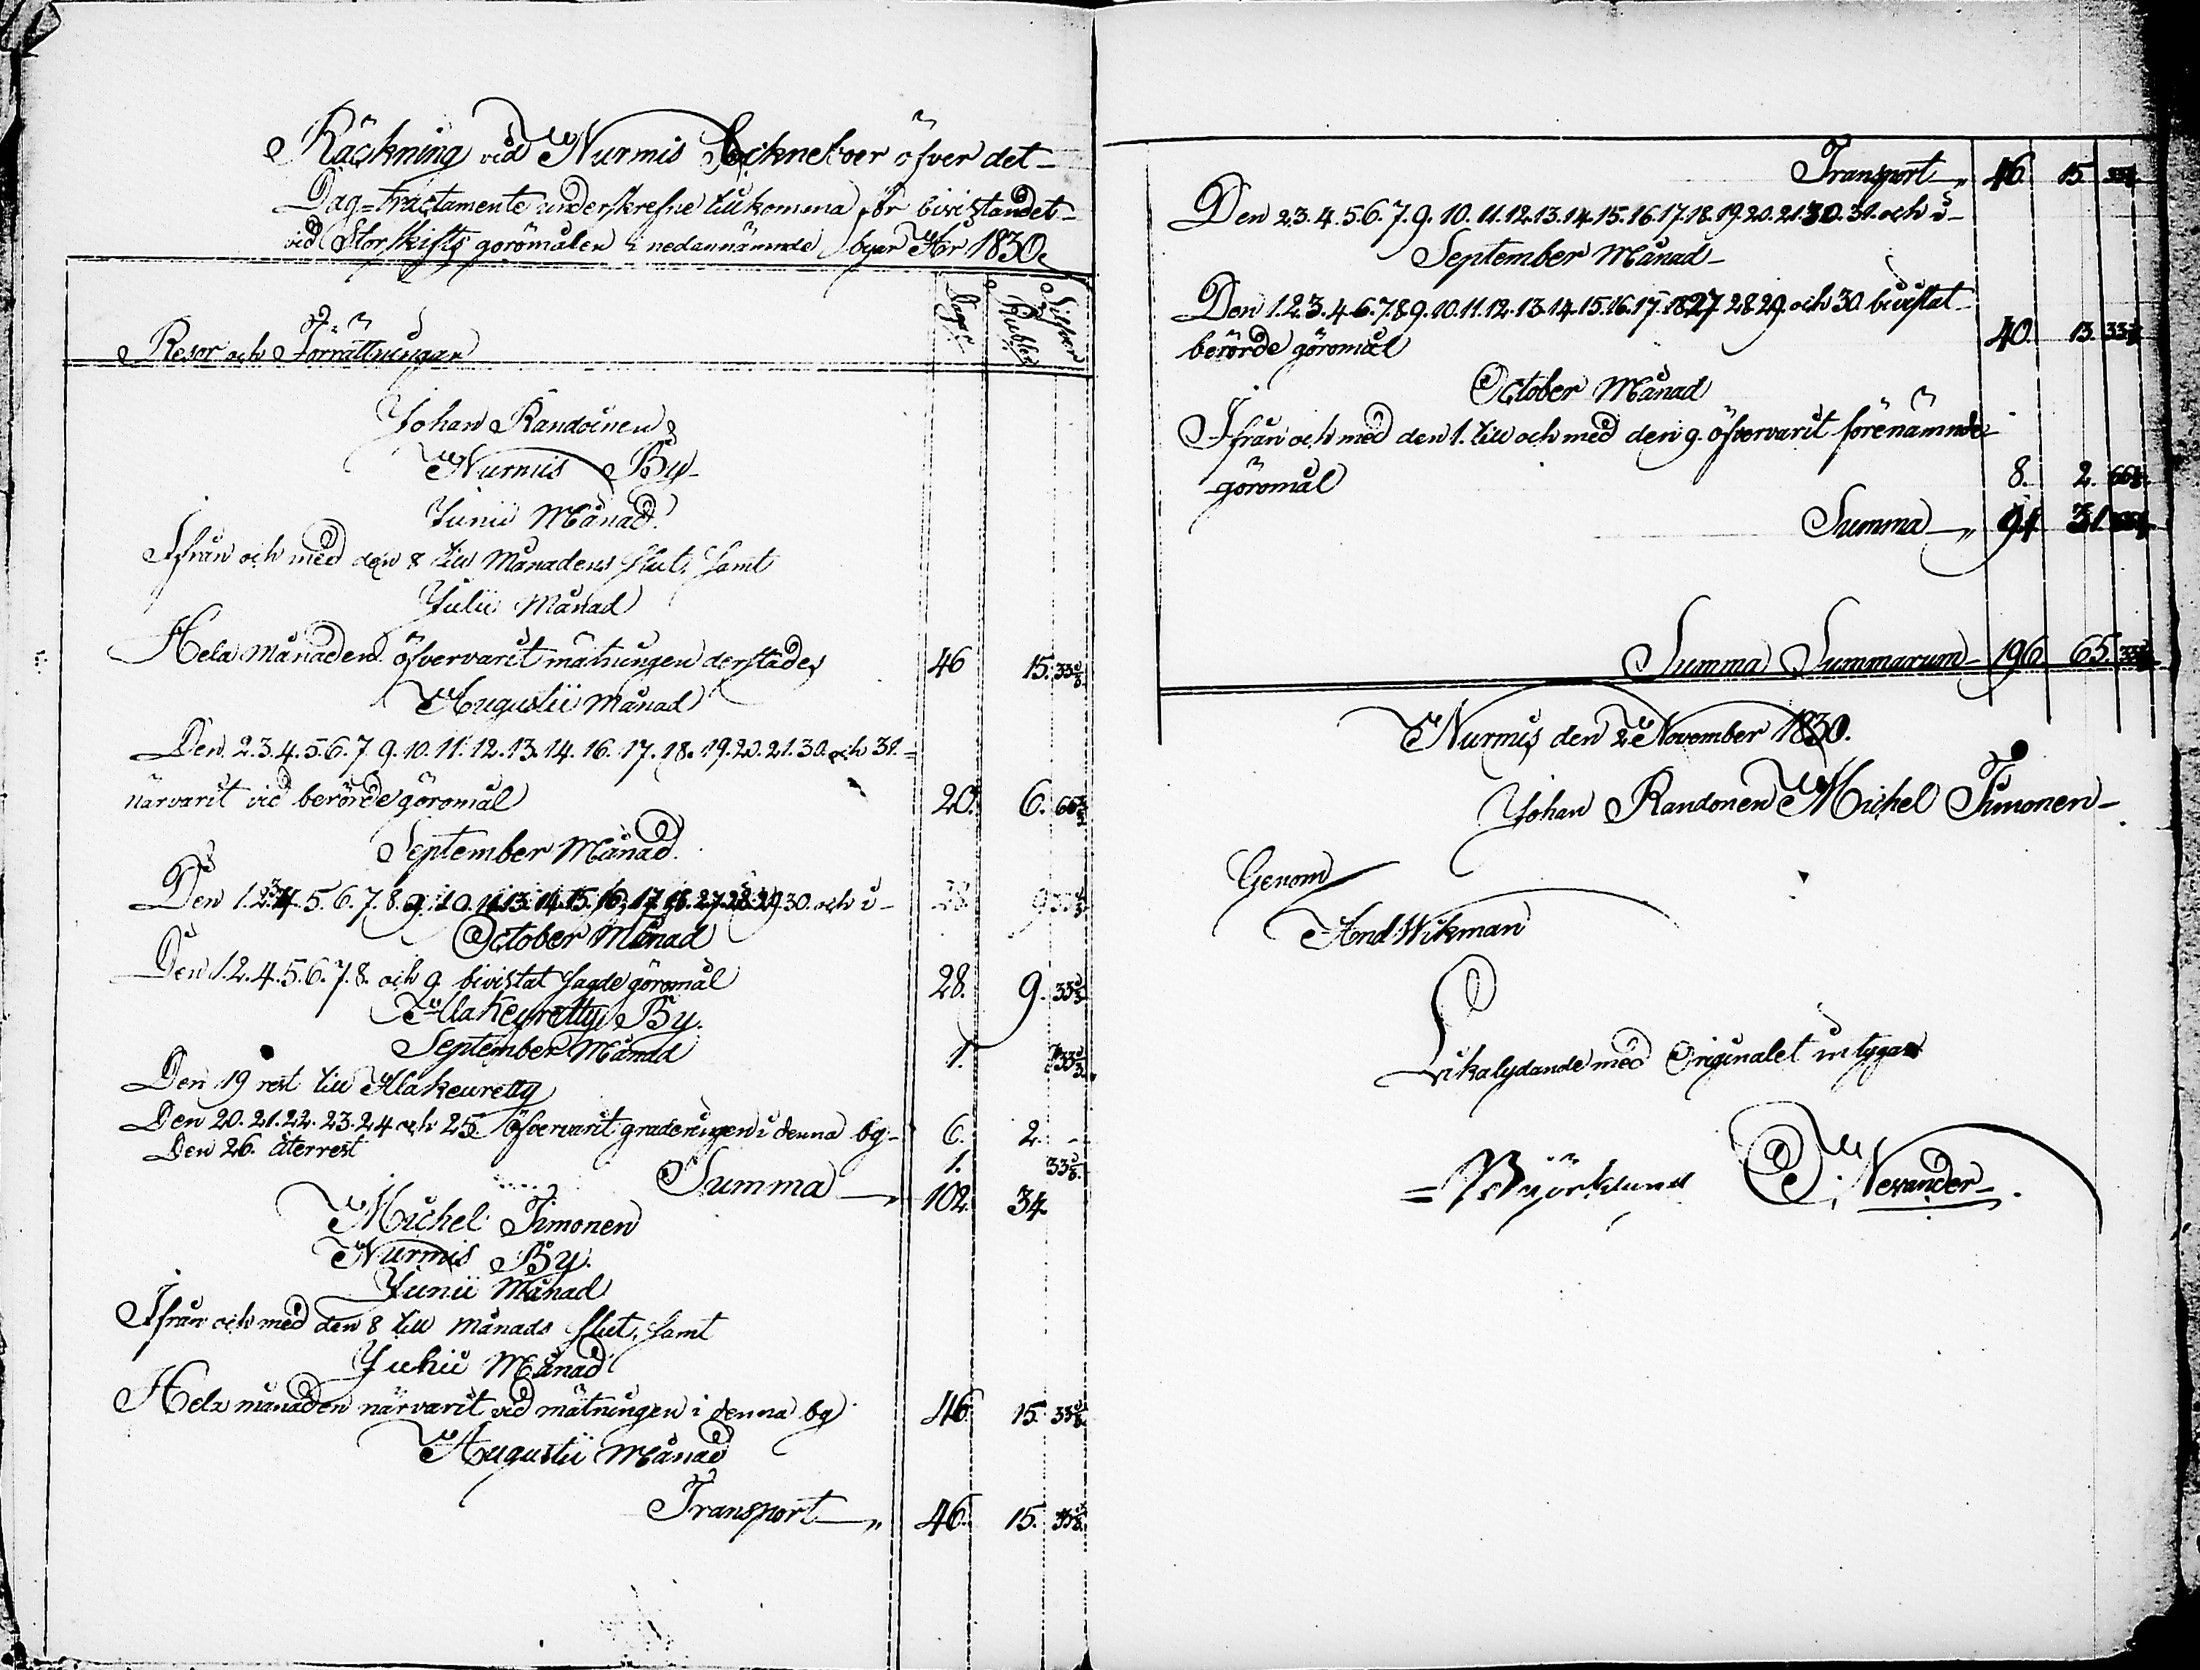 Räckning vid Nurmis Socknet öfver det
Dag=tractamente underskrefne tillkomma för bivistandet
vid Storskifts göromålen i nedannämnde byar År 1830.
Dagar
Rubler
Silfver
Resor och Förrättningar
Johan Randoinen
Nurmis By
Junii Månad.
Ifrån och med den 8 till Månadens slut, samt
Julii Månad
Hela månaden öfvervarit mätningen derstädes 46 15. 33 1/3.
Augustii Månad
Den 2. 3. 4. 5. 6. 7. 9. 10. 11. 12. 13. 14. 16. 17. 18. 19. 20. 21. 30. och 31.=
närvarit vid berörde göromål 20. 6. 66 2/3
September Månad.
Den 1. 2. 3. 4. 5. 6. 7. 8. 9. 10. 11. 13. 14. 15. 16. 17. 18. 27. 28. 29 30. och i 28. 9 33 1/3
October Månad
Den 1. 2. 4. 5. 6. 7. 8. och 9. bivistat sagde göromål 28. 9. 33 1/3
Ylla Keyretty By.
September Månad
Den 19 rest till Alakeuretty 1. 33 1/3
Den 20. 21. 22. 23. 24 och 25. öfvervarit graderingen i denna by 6. 2. -
Den 26. återrest 1. 33 1/3.
Summa — 102. 34
Michel Timonen
Nurmis By.
Junii Månad
Ifrån och med den 8 till Månads slut, samt
Julii Månad
Hela månaden närvarit vid mätningen i denna by 46. 15. 33 1/3.
Augustii Månad
Transport — „ 46. 15. 33 1/3.
Transport „ 46 15 33 1/3
Den 2. 3. 4. 5. 6. 7. 9. 10. 11. 12. 13. 14. 15. 16. 17. 18. 19. 20. 21. 30. 31. och i
September Månad
Den 1. 2. 3. 4. 6. 7. 8. 9. 10. 11. 12. 13. 14. 15. 16. 17. 18. 27 28 29. och 30. bivistat
berörde göromål 40. 13. 33 1/3
October Månad
Ifrån och med den 1. till och med den 9. öfvervarit förenämnde
göromål 8. 2. 66 2/3.
Summa — „ 94 31. 33 1/3
Summa Summarum 196 65. 33 1/3
Nurmis den 2 November 1830.
Johan Randonen Michel Timonen
Genom
And Wikman
Likalydande med Originalet intygar
Björklund
Nexander